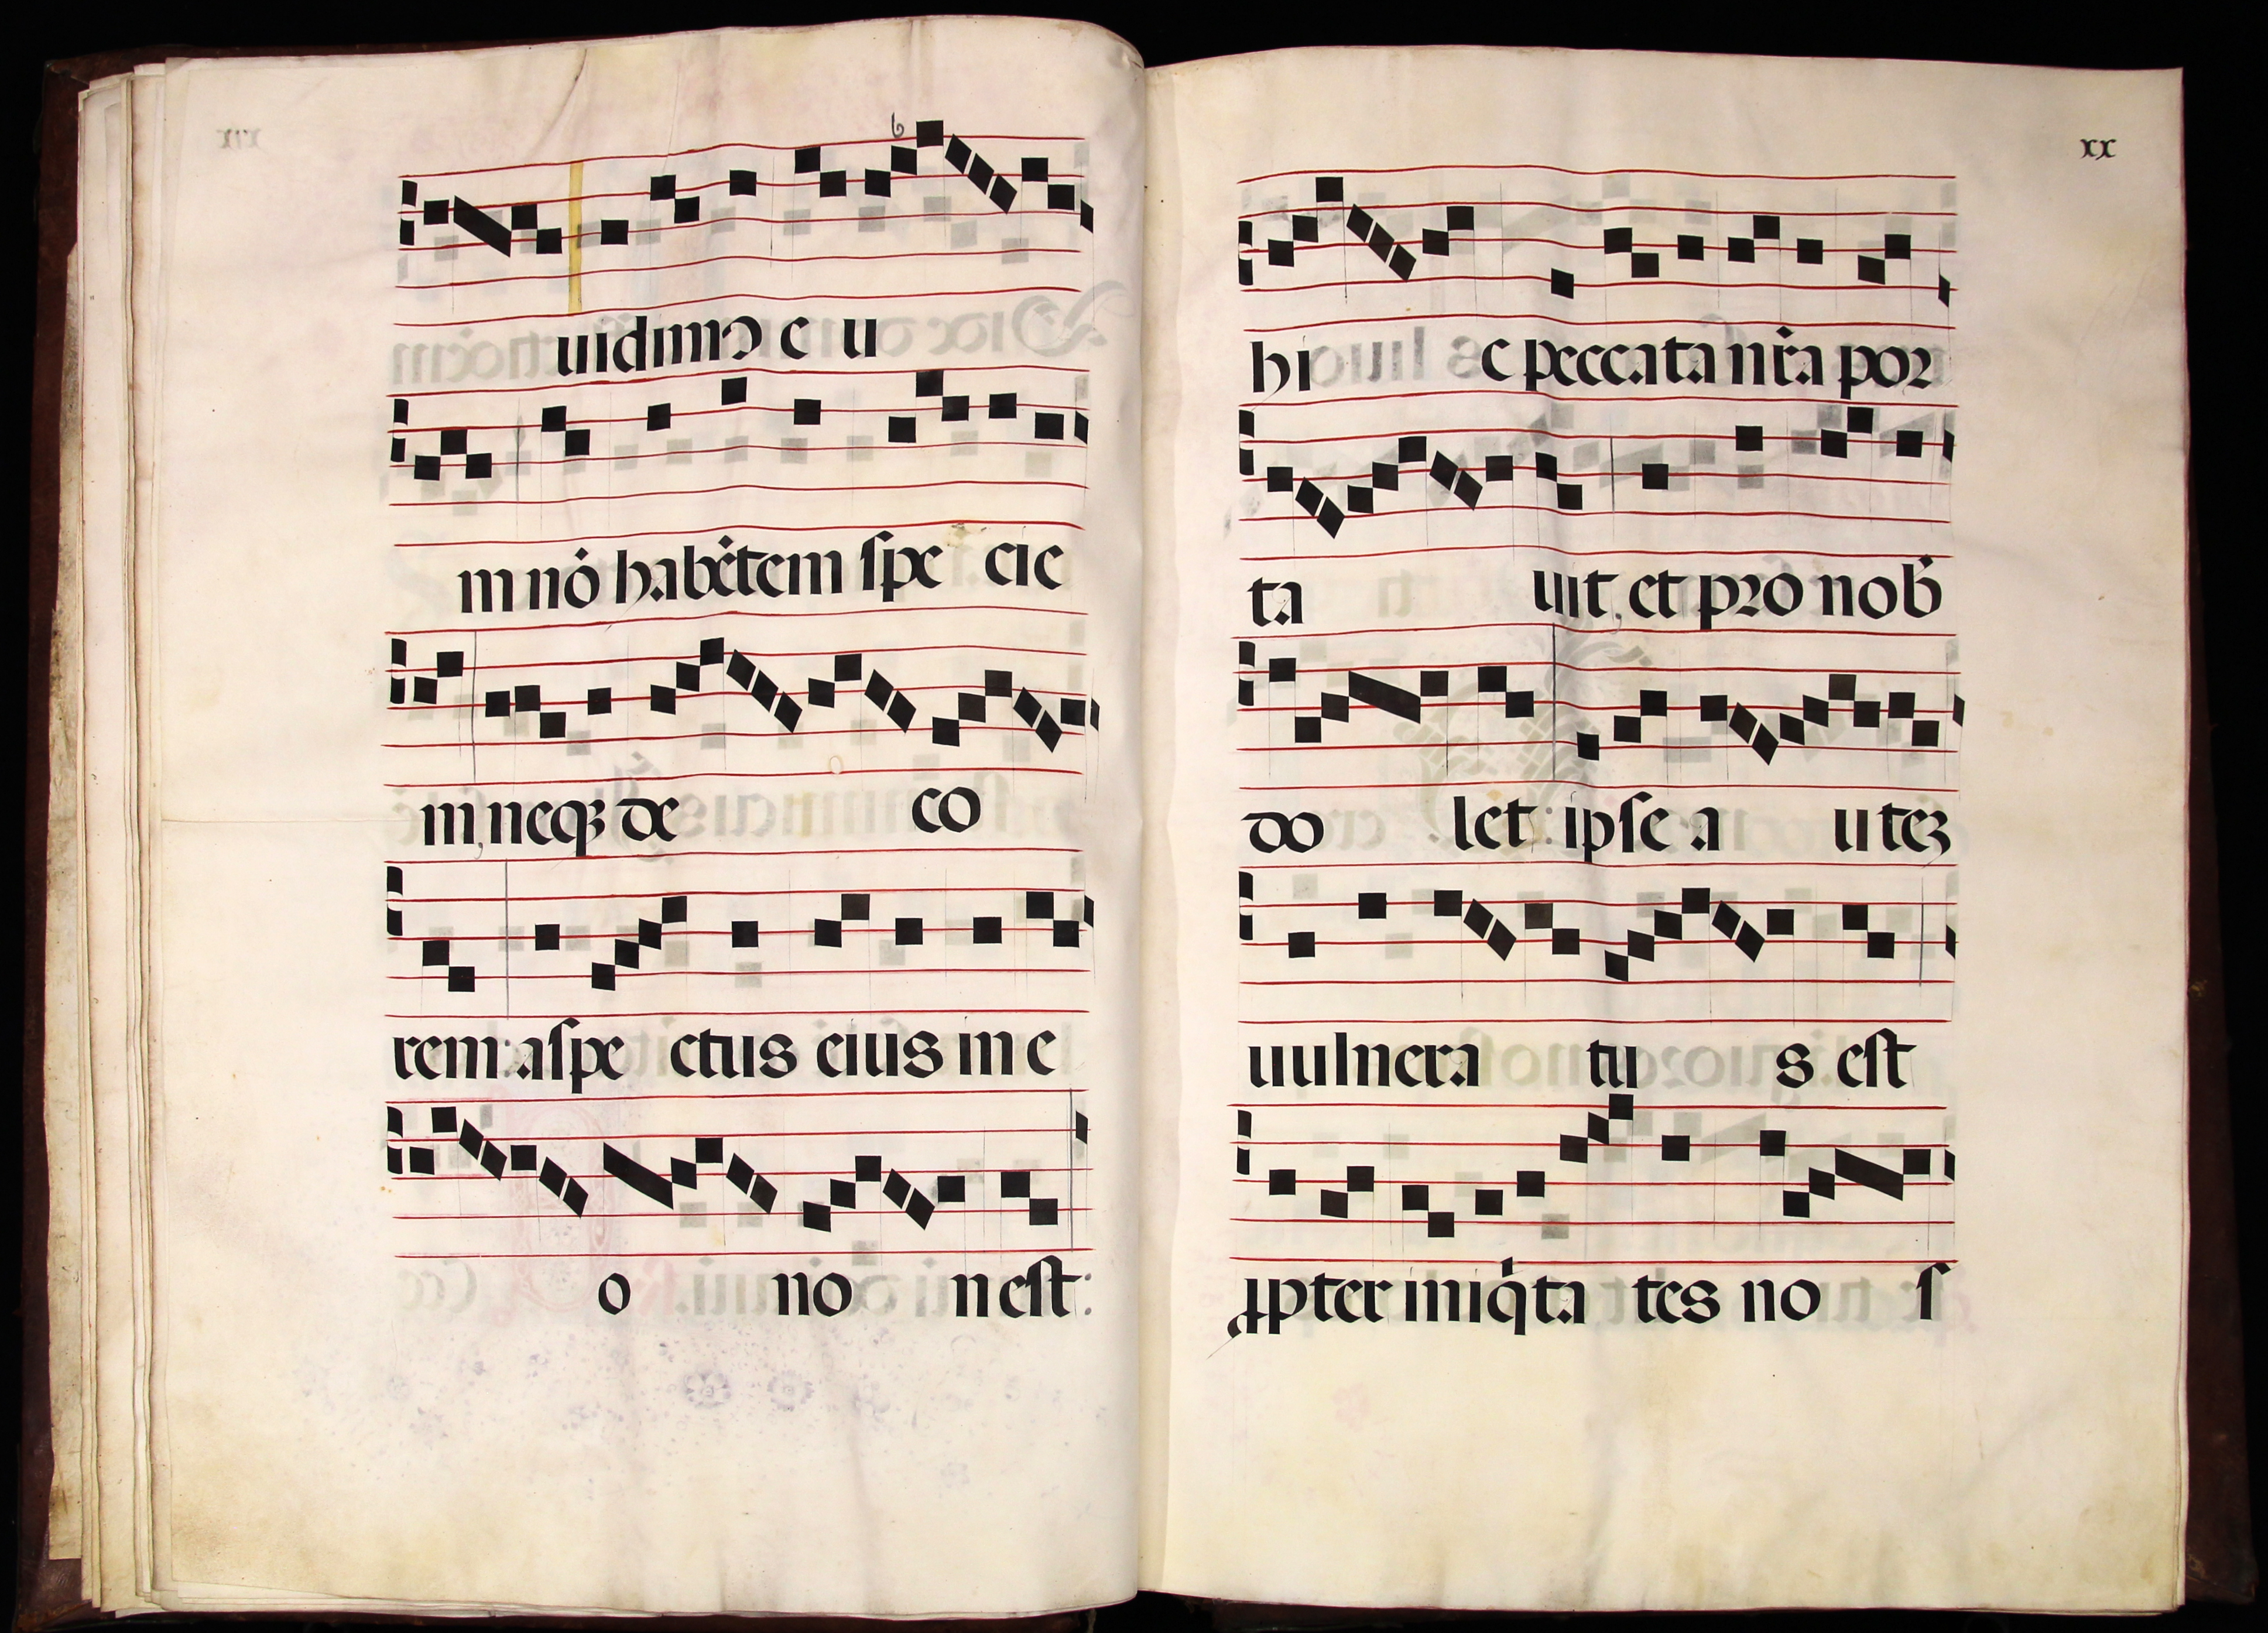 uidimꝰ e u
m nō habētem ſpe cie
m, neqꝫ de co
rem: aſpe ctus eius in e
o no n est:
xx
hi c peccata nr̄a por
ta uit, et pro nob̄
do let: ipſe a uteꝫ
uulnera tu s eſt
ꝓpter iniq̇ta tes no ſ